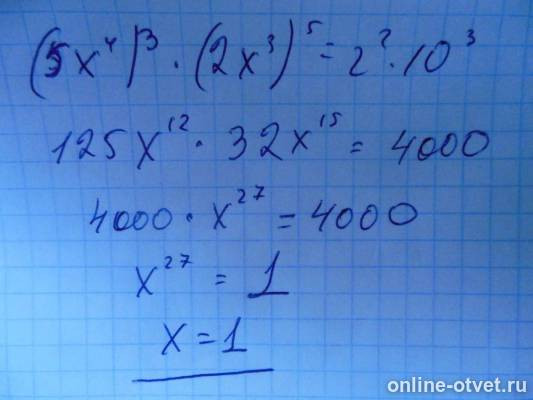 (5x⁴)³ · (2x³)⁵ = 2² · 10³
125x¹² · 32x¹⁵ = 4000
4000 · x²⁷ = 4000
x²⁷ = 1
x = 1
online-otvet.ru